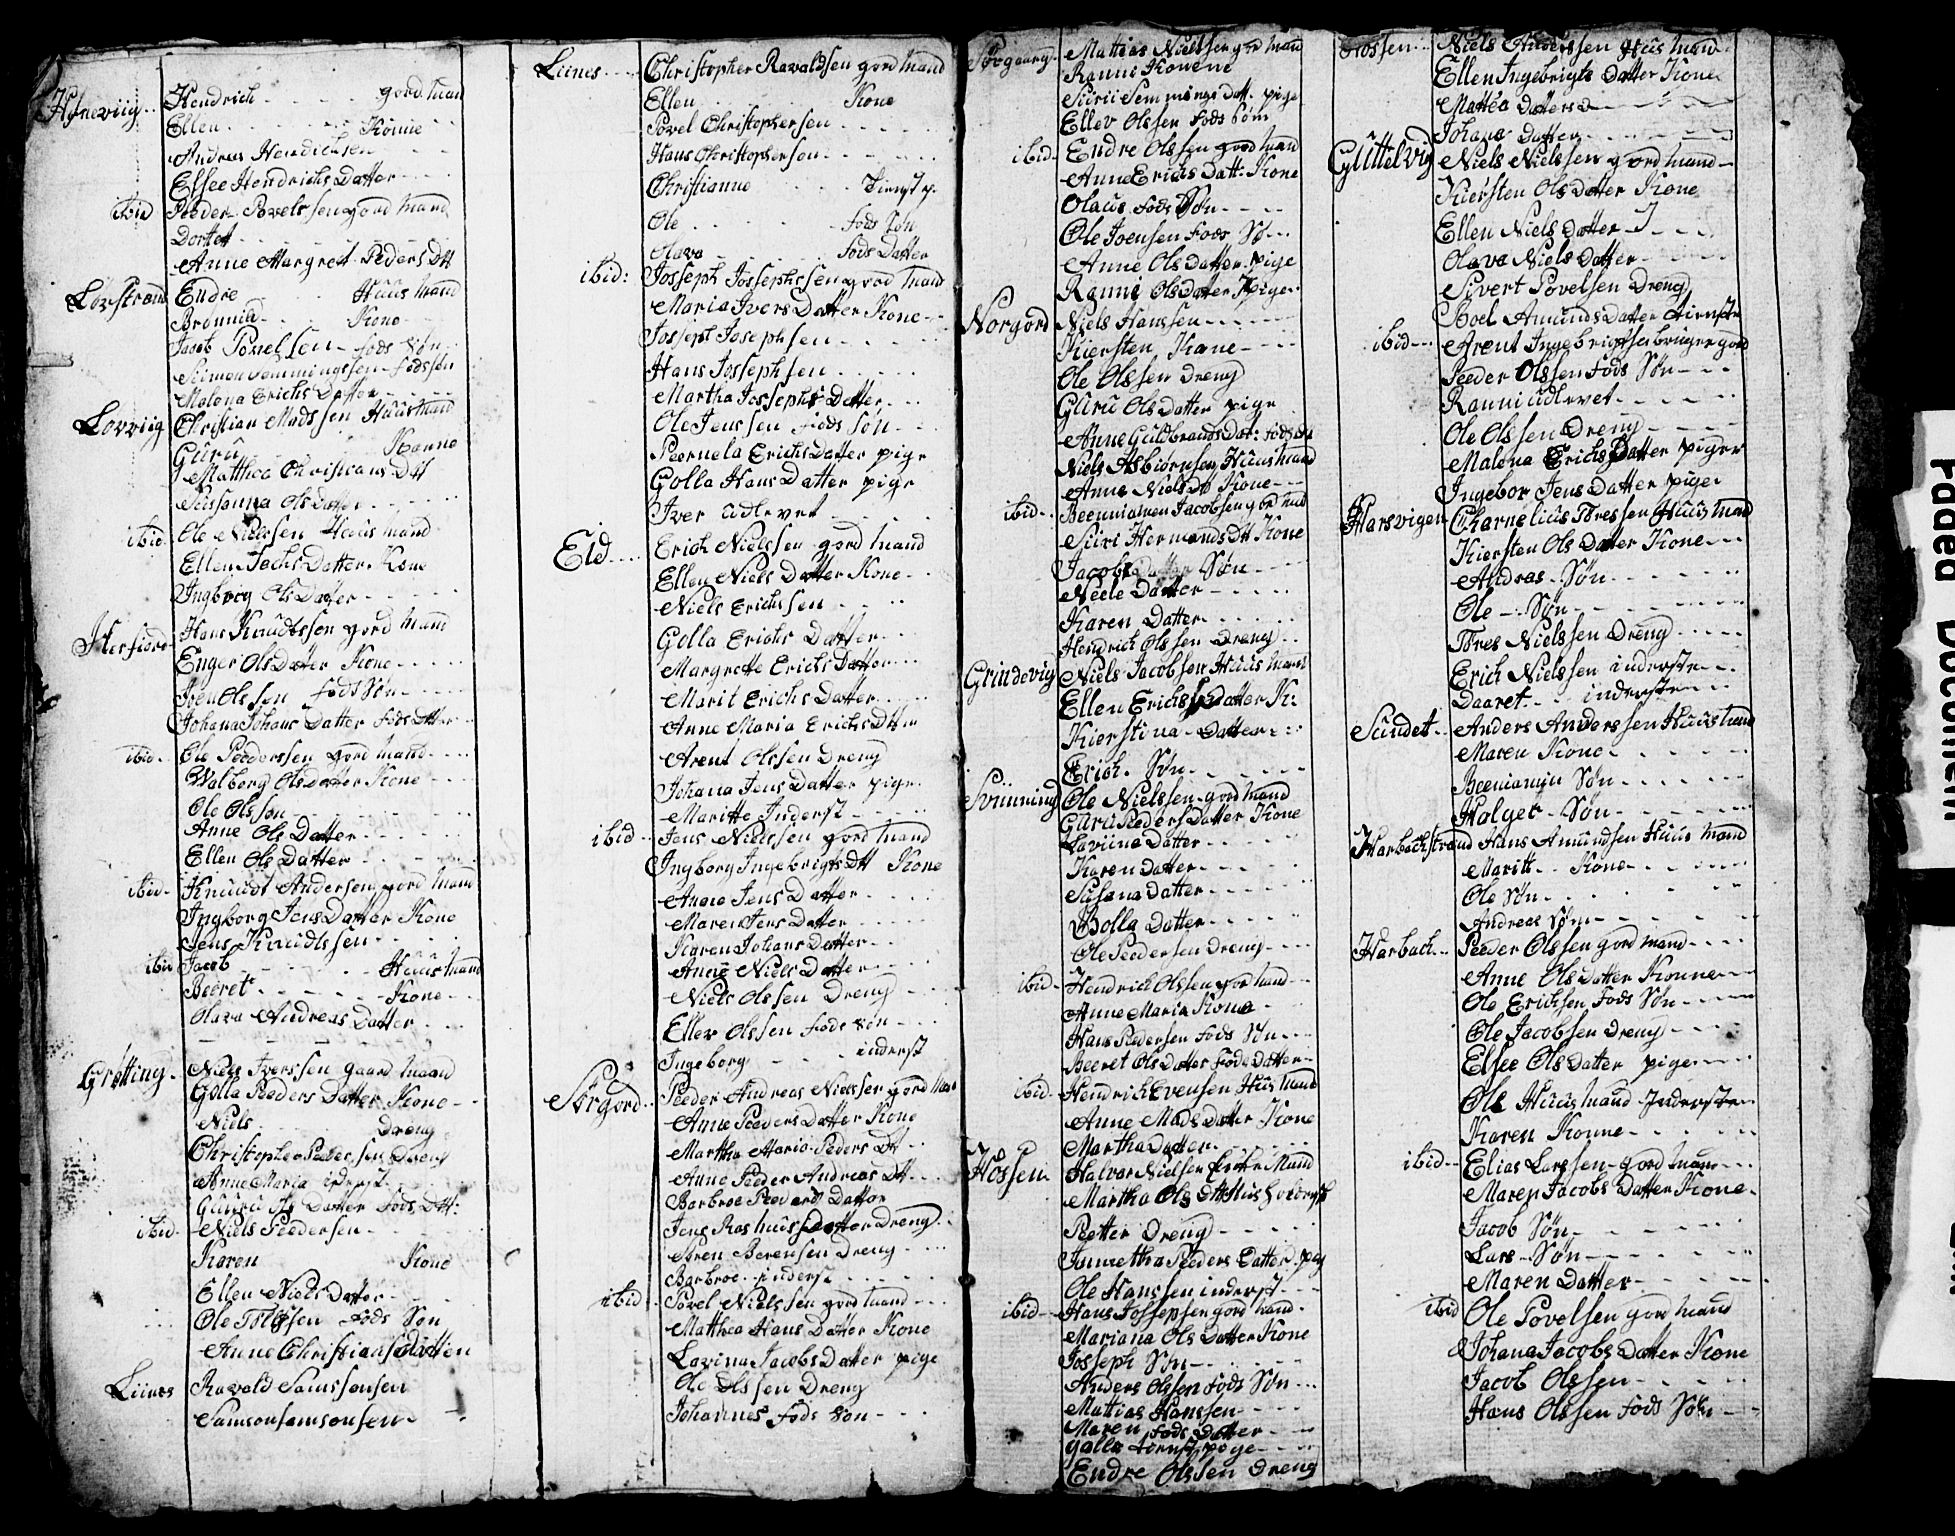 Hendrich - - - - gord Mand
Ellen - - - - Konne
Andreas Hendichsen - -
Elsee Hendrichs Datter - -
ibid Peeder Povelssen gord Mand
Dortet - - - -
Anne Margret Peders Dtt
Lovstrand Endre Huus Mand
Kone -
Jacob Povelssen - fods Søn
Fodsøn
Malena Erichs Datter
Lovviig Christian Madssen Huusmand
Guru Konne
Matthea Christians Dtt
Sussanna Ols Datter - -
ibid Ole Nielssen Huus Mand
Ellen Datter. Kone
Ingborg Ols Datter - - -
Hans Knudtssen gord Mand
Enger Ols Datter Kone - - -
Joen Olssøn fods Søn - - -
Johana Johans Datter fods Dtter
ibid - Ole Peedersen gord Mand - - -
Walborg Ols Datter Kone - - -
Ole Olssøn - - -
Anne Ols Datter - - -
Ellen Ols Datter - - -
ibid - Knuudt Andersen gord Mand
Ingborg Jens Datter Kone
Jens Knudtssen - - -
ibid Jacob - - - Huus Mand
Beeret - - - - Kone -
Olava Andreas Datter - -
Grøtting - Niels Iverssen gaard Mand
Golla Peeders Datter Kone -
Niels - - Dreng
Christopher Pedersen Dreng
Anne Maria inderst -
Guuru Ols Datter Fods Dtt:
ibid - Niels Peedersen - - -
Karen Kone
Ellen Niels Datter - - -
Ole Fods Søn
Anne Christians Datter
Liines Ravald Samssonsen
Samson Samsonsen -
Liines - - - Christopher Ravaldsen gord Mand
Ellen - - - Kone
Povel Christophersen - - - -
Hans Christophersen - - - -
Christianne - - - Tienst p.
Ole - - - fods Søn
Olava - - - fods Datter
ibid: Josseph Jossephssen gord Mand
Maria Ivers Datter Kone - -
Josseph Josephsen - - - -
Hans Jossephsen - - - -
Martha Jossephs Datter - - -
Ole Jenssen Fods Søn - - -
Peernela Erichs Datter pige
Golla Hans Datter pige
Iver udlevet - - - -
Eid - - - Erich Nielssen gord Mand
Ellen Niels Datter Kone - -
Niels Erichssen - - -
Golla Erichs Datter - - -
Margrette Erichs Datter - - -
Marit Erichs Datter - - -
Anne Maria Erichs Dttr
Arent Olssen Dreng
Johana Jens Datter pige.
Maritte Inderst - - -
ibid - - Jens Nielssen gord Mand
Ingborg Ingebrigts Dtt Kone
Anne Jens Datter - - - -
Maren Jens Datter - - -
Karen Johans Datter - - -
Anne Niels Datter - - -
Niels Olssen Dreng - - -
Ellev Olssen fods Søn - - -
Ingeborg - - - inderst
Sørgord - - Peeder Andreas Nielssen gord Man
Anne Peeders Datter Kone
Martha Maria Peders Dt - -
Anne Peeder Andreas Dt - -
Barbroe Peeders Datter
Jens Rasmus Datter Dreng - -
Søren Berensen Dreng - - -
Barbroe - inderst - - - -
ibid - Povel Nielssen gord Mand - - -
Matthea Hans Datter Kone
Lavina Jacobs Datter pige
Ole Olssen Dreng
Johannes fods Søn - - -
Sørgaarg - Mattias Nielssen gord Mand
Ranni Konene
Siirii Semmings Datt - pige
Ellev Olssen Fods Søn
ibid - Endre Olssen gord Mand
Anne Erichs Datt: Kone
Olaus Fods Søn - - -
Ole Joensen Fods Sø - - -
Anne Ols Datter. pige
Ranni Ols Datter Piger
Norgord Niels Hanssen - - - - -
Kiersten Kone - - - -
Ole Olssen Dreng
Guru Ols Datter pige
Anne Guldbrands Dat: fods
Niels Asbiørnsen Huus Mand
Anne Niels Dt Kone - - -
ibid - - Beeniamen Jacobsen gord Mand
Siiri Hermands Dt Kone
Jacob Søn - - -
Neele Datter - - - -
Karen Datter - - - -
Hendrich Olssen Dreng - - -
Grindevig Niels Jacobsen Huus Mand
Ellen Erichs Datter K:
Kierstina - Datter - - -
Erich. Søn - - - -
Sviinning Ole Nielssen - gord Mand
Guru Peeders Datter Kone
Laviina Datter - - -
Karen Datter - - - -
Susana Datter - - - -
Bolla Datter - - - -
Ole Peedersen Dreng - - -
ibid - Hendrich Olssen gord Mand - -
Anne Maria Kone -
Hans Pedersen Fods Søn - - -
Beeret Ols Datter Fods Datter -
ibid - Hendrich Evensen Huus Mand
Anne Mads Datter Kone
Martha Datter - - - -
Hossen Halvor Nielsen Mand
Martha Ols Dtt
Peetter Dreng - - - - -
Peeders Datter pig
Ole Hanssen inderst - - -
ibid - - Hans Jossepsen gord Mand -
Mariana Ols Datter Kone
Josseph Søn - - - - -
Anders Olssen Fods Søn - - -
Mattias Hanssen - - - -
Maren Fods Datter - - -
Golla tienst pige - - - -
Endre Olssen Dreng
Hossen - - Niels Anderssen Huus Mand
Ellen Ingebrigts Datter Kone
Mattea Datter - - - -
Johana Datter - - - -
Gluttelvig Niels Nielssen gord Mand -
Kiersten Ols Datter Kone
Ellen Niels Datter - - - -
Olava Niels Datter - - - -
Sivert Povelsen Dreng
Boel Amunds Datter tienste
ibid - - Arent Ingebrigtsen bruger gord
Peeder Olssen Fods Søn - - -
Ranni udlevet - - - - -
Ole Olssen Dreng - - - -
Malena Erichs Datter piger
Ingebor Jens Datter piger
Harsvigen Charnelius Toressen Huus Mand
Kiersten Ols Datter Kone - - -
Andras - Søn - - - - -
Ole - - Søn - - - - -
Tores Nielssen Dreng - - - -
Erich Nielssen inderste - - -
Daaret - - inderste - - -
Sundet - Anders Anderssen Huus Mand
Maren Kone - - - - -
Beeniamin Søn - - - - -
Holger - Søn - - - - -
Harbachstrand Hans Amundsen Huus Mand
Maritt - - Kone - - - -
Ole Søn - - - - -
Andreas Søn - - - - -
Harbach - - Peeder Olssen gord Mand - - - -
Anne Ols Datter Konne - - -
Ole Erichsen Fods Søn - - - -
Ole Jacobsen Dreng - - - -
Elsee Ols Datter piger - - -
Ole Huus Mand Inderste -
Karen Konne - - - - -
ibid - - Elias Larssen - gord Mand - - -
Maren Jacobs Datter Kone -
Jacob Søn - - - - -
Lars - Søn - - - - -
Maren Datter - - - - -
ibid Ole Povelsen gord Mand
Johana Jacobs Datter Kone
Jacob Olssen - - - - -
Hans Olssen Fods Søn - -